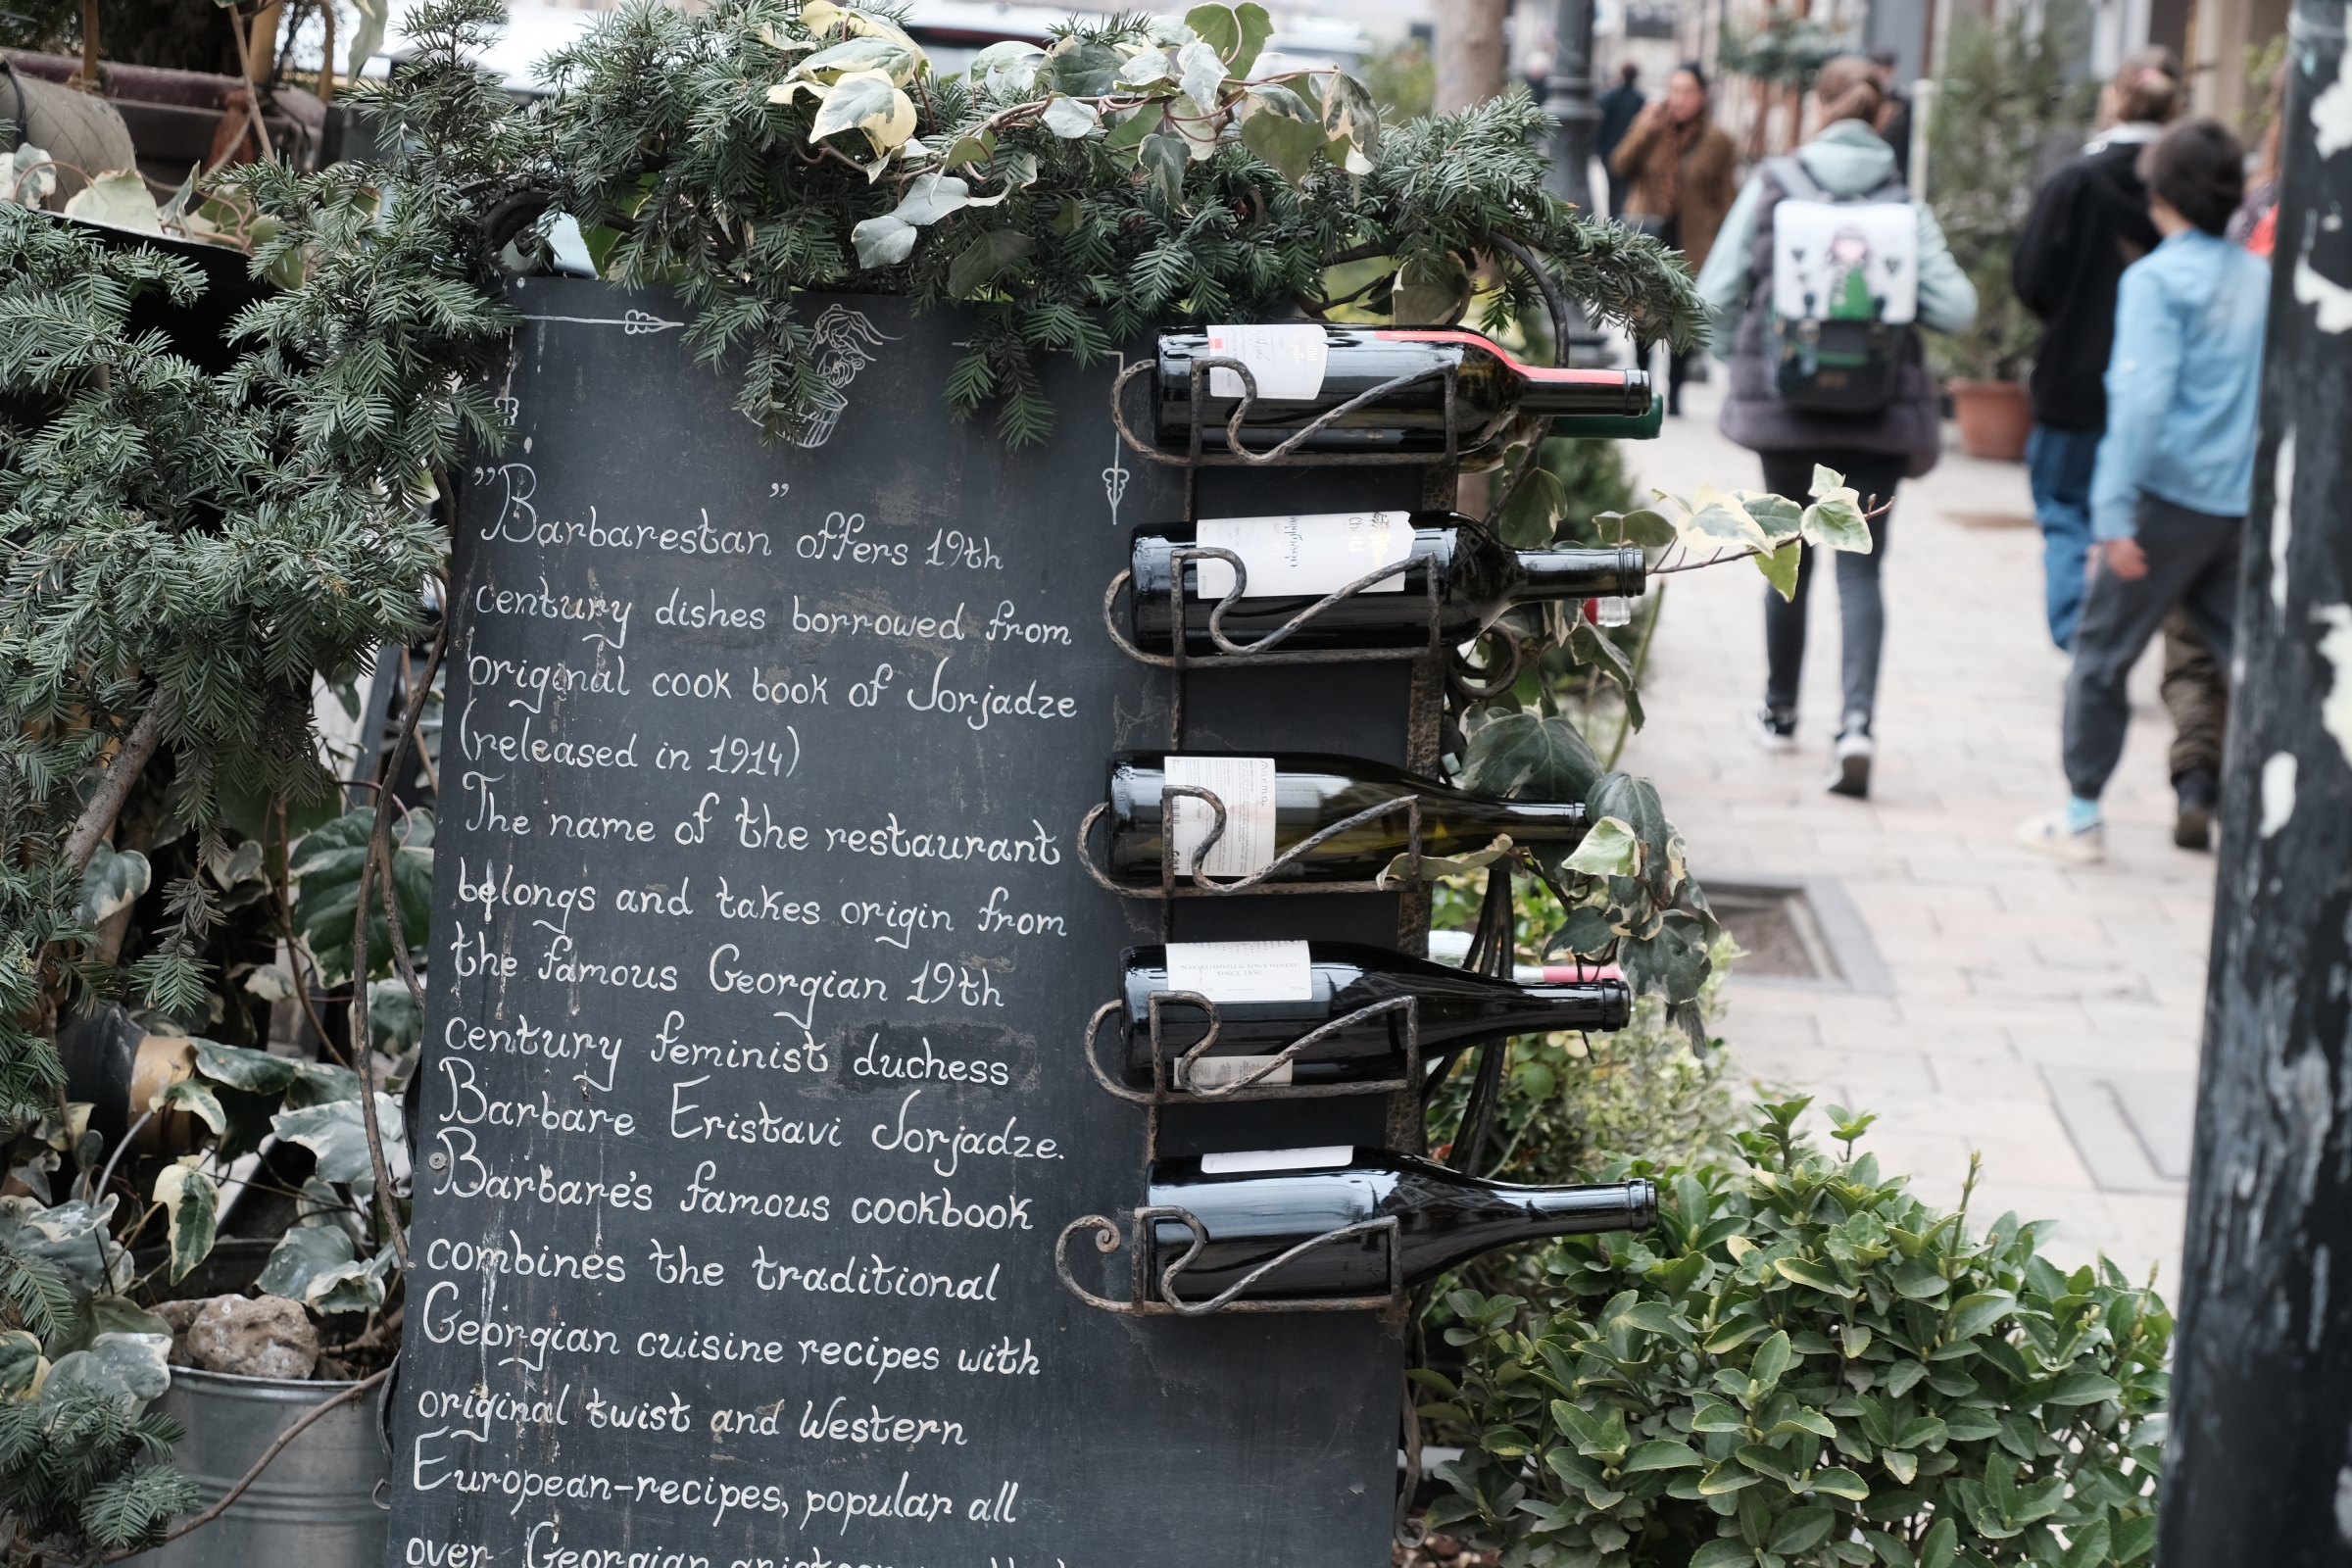 "Barbarestan" offers 19th
century dishes borrowed from
original cook book of Jorjadze
(released in 1914)
The name of the restaurant
belongs and takes origin from
the famous Georgian 19th
century feminist duchess
Barbare Eristavi Jorjadze.
Barbare's famous cookbook
combines the traditional
Georgian cuisine recipes with
original twist and Western
European-recipes, popular all
over Georgian
SINCE 1850